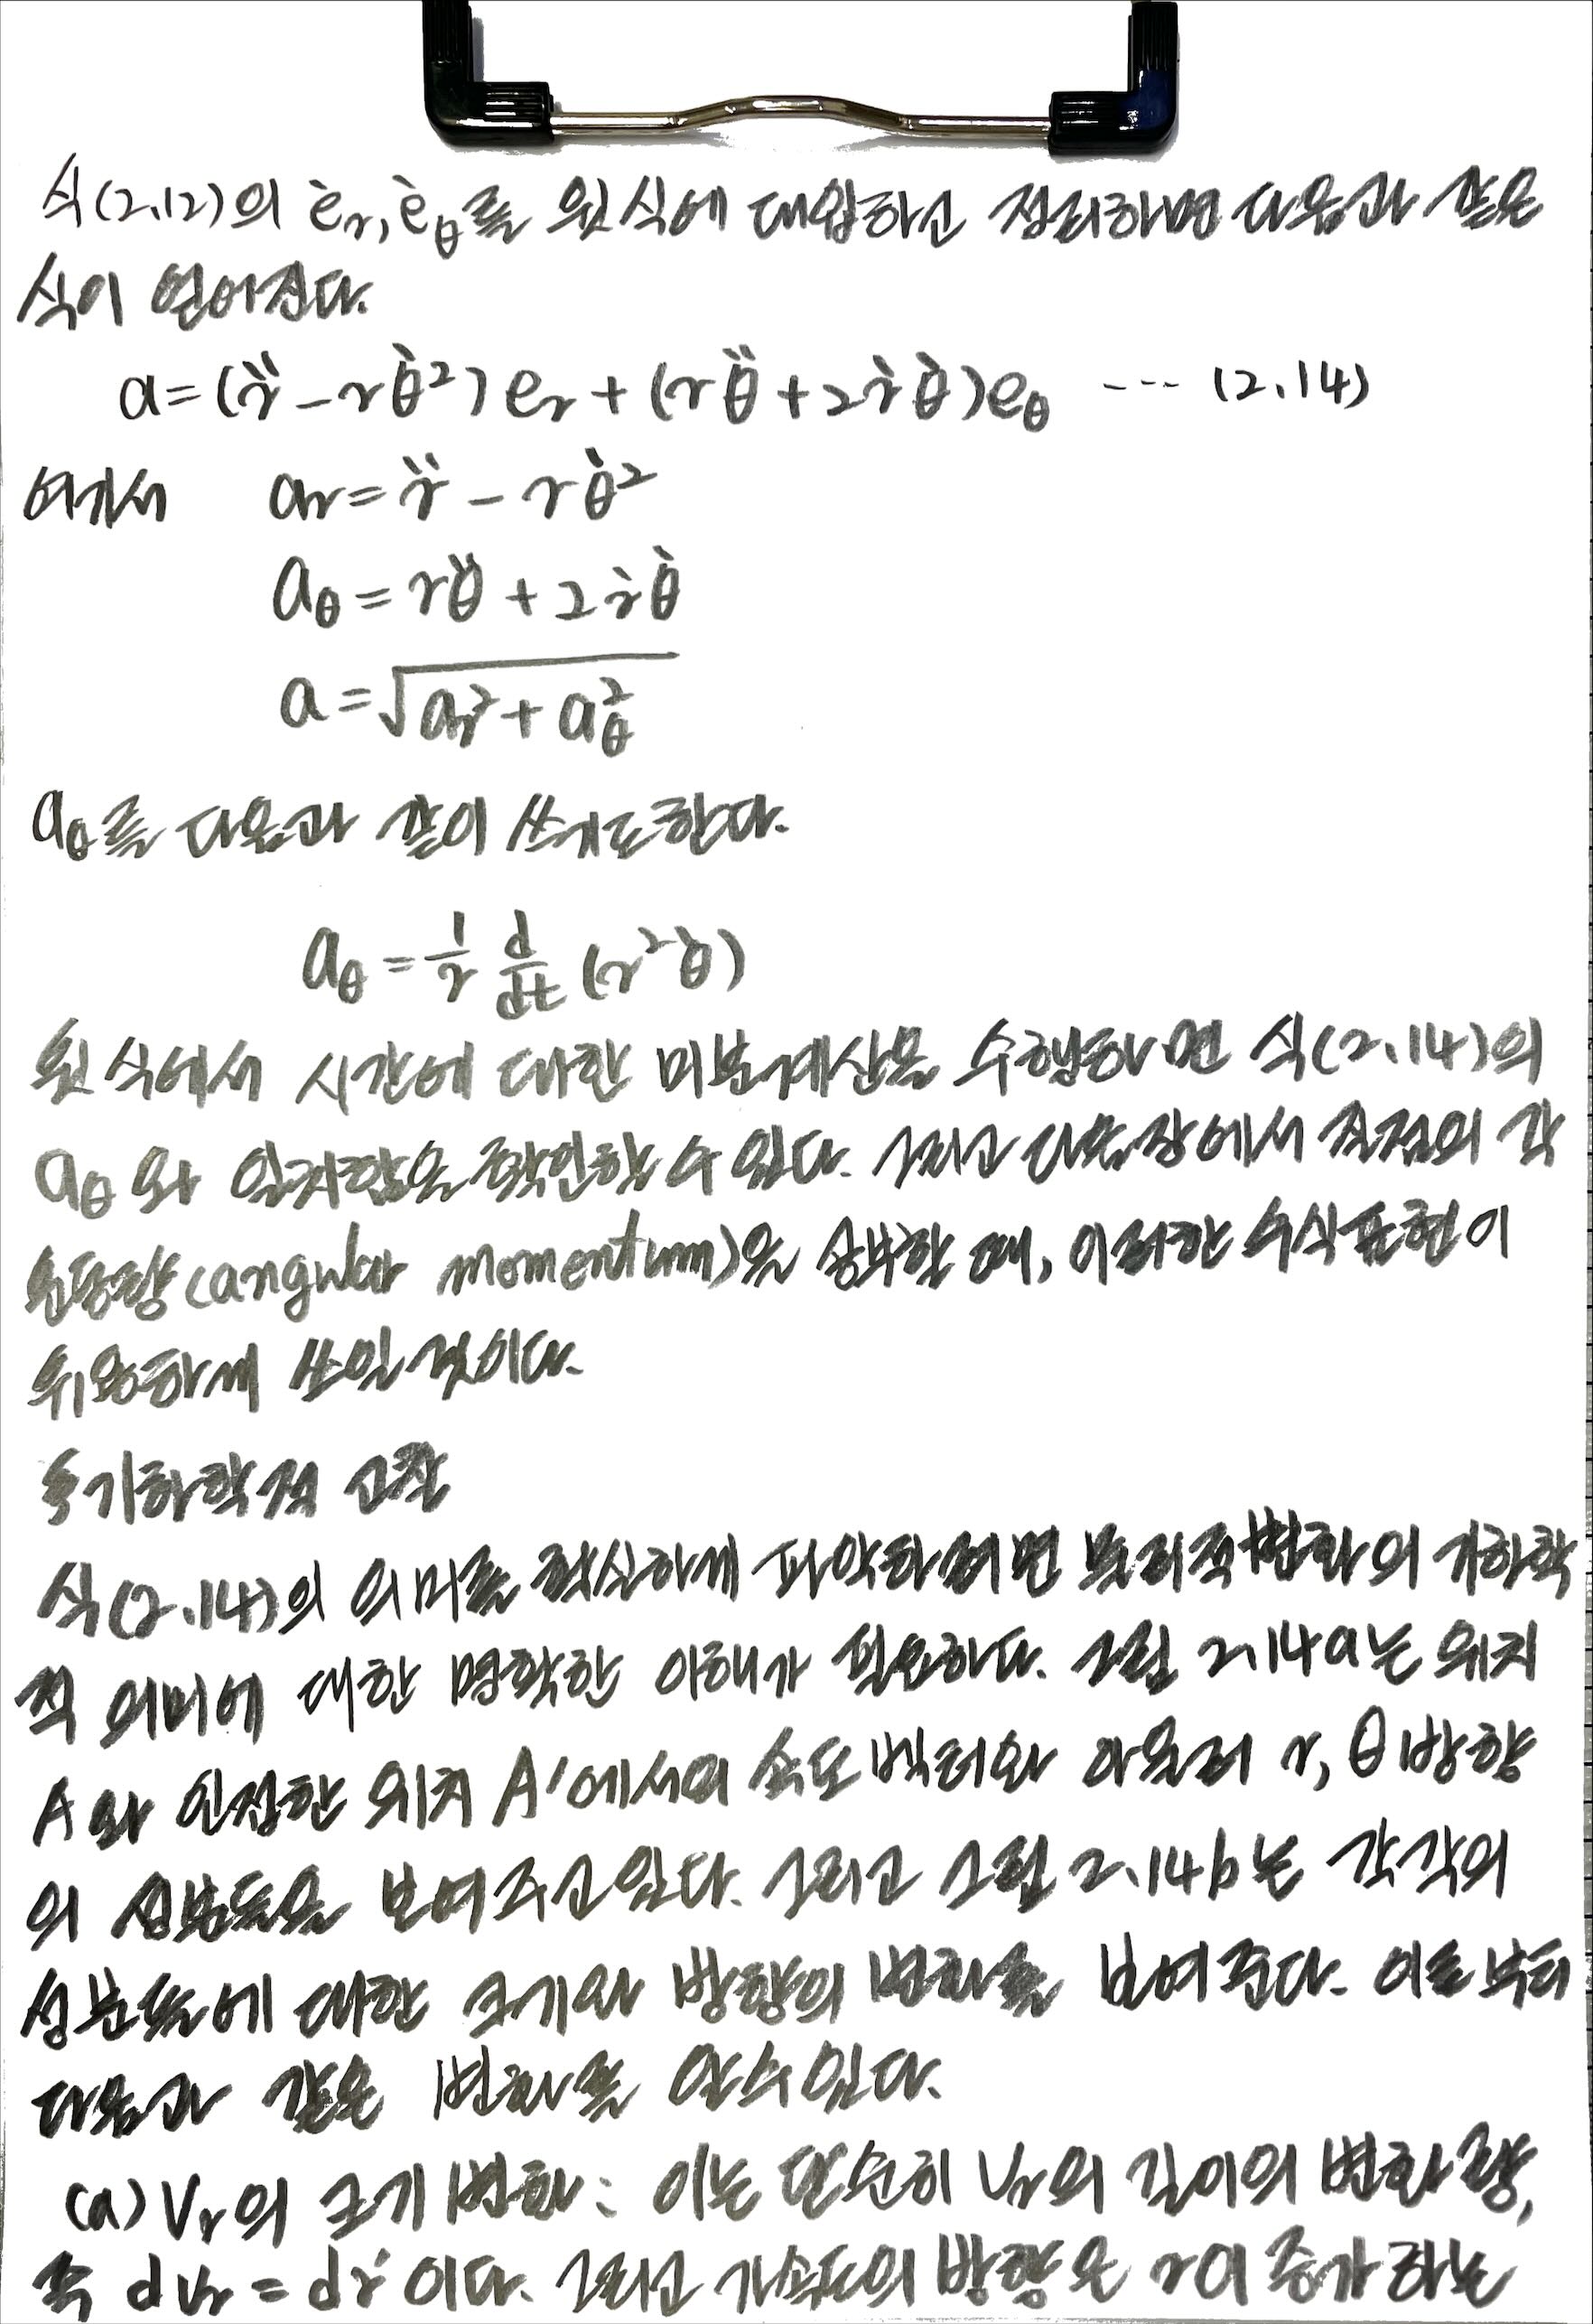 식(2.12)의 ėr, ėθ를 윗 식에 대입하고 정리하면 다음과 같은
식이 얻어진다.
a=(r̈-rθ̇²)er+(rθ̈+2ṙθ̇)eθ --- (2.14)
여기서 ar=r̈-rθ̇²
aθ=rθ̈+2ṙθ̇
a=√(ar²+aθ²)
aθ를 다음과 같이 쓰기도 한다.
aθ=1/r d/dt (r²θ̇)
윗 식에서 시간에 대한 미분계산을 수행하면 식(2.14)의
aθ와 일치함을 확인할 수 있다. 그리고 다음 장에서 질점의 각
운동량(angular momentum)을 공부할 때, 이러한 수식표현이
유용하게 쓰일 것이다.
기하학적 고찰
식(2.14)의 의미를 확실하게 파악하려면 물리적 변화의 기하학
적 의미에 대한 명확한 이해가 필요하다. 그림 2.14a는 위치
A와 인접한 위치 A'에서의 속도 벡터와 아울러 r, θ방향
의 성분들을 보여주고 있다. 그리고 그림 2.14b는 각각의
성분들에 대한 크기와 방향의 변화를 보여 준다. 이로부터
다음과 같은 변화를 알 수 있다.
(a) Vr의 크기 변화: 이는 단순히 Vr의 길이의 변화량,
즉 dvr=dṙ이다. 그리고 가속도의 방향은 r이 증가하는